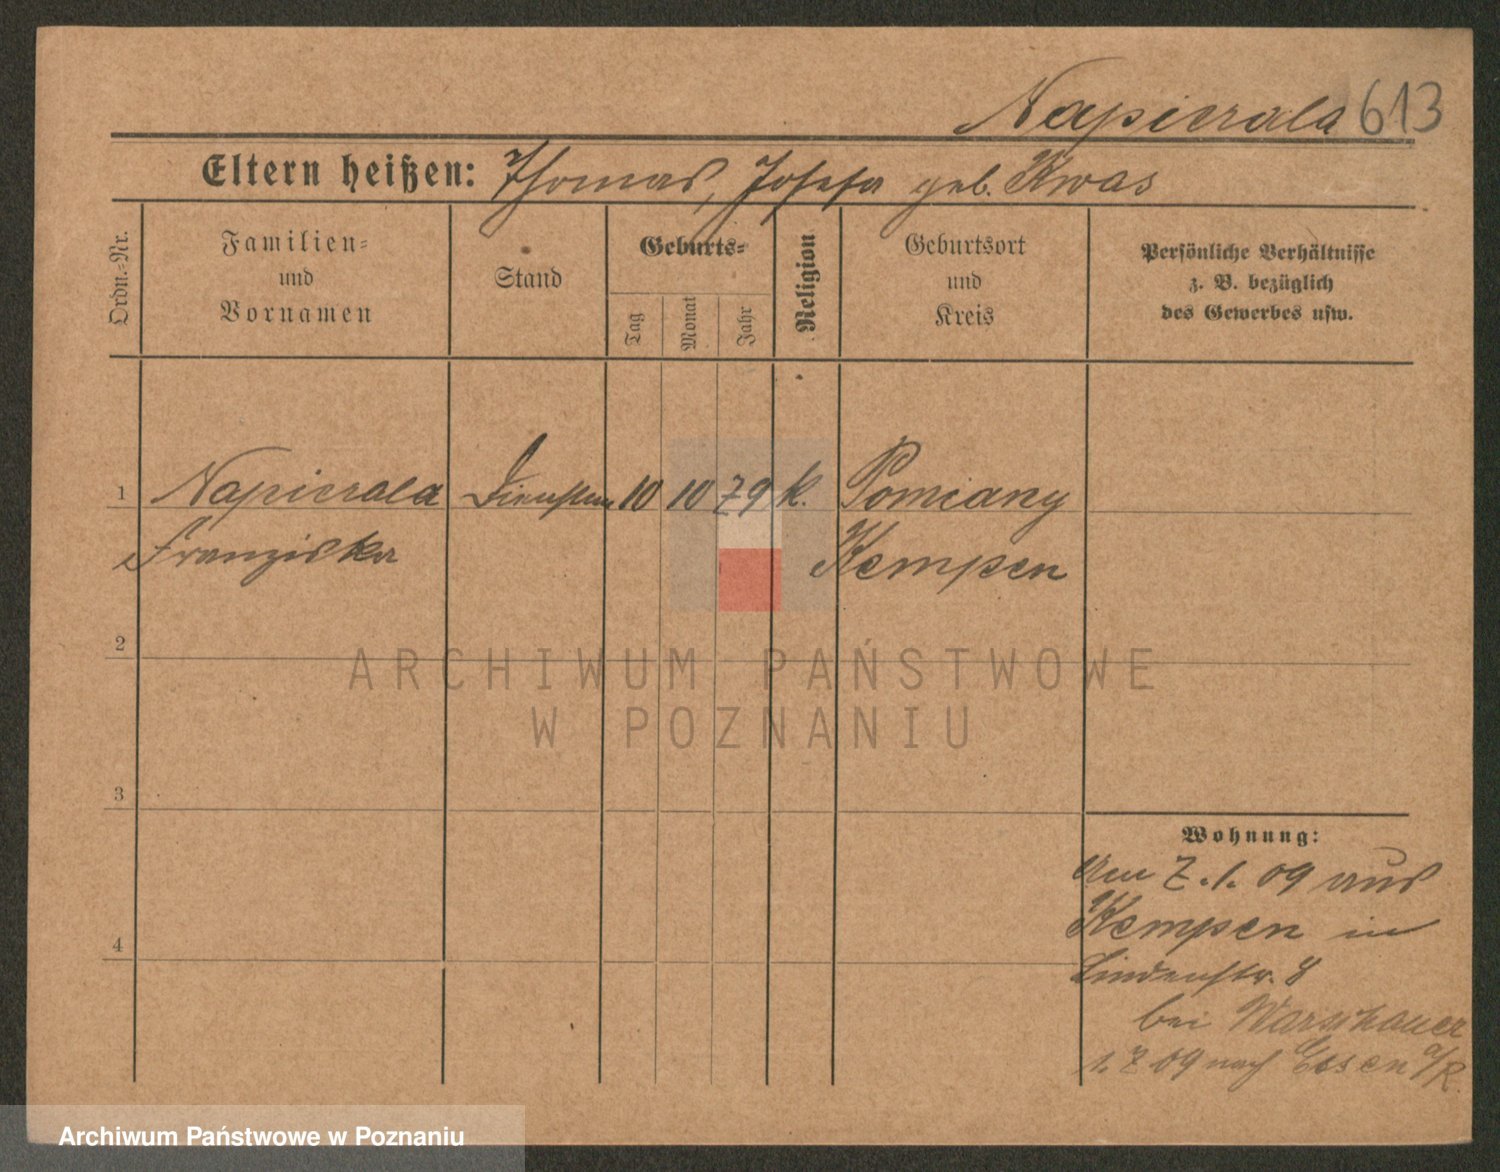 Napierala 613
Eltern heißen: Thomas, Josefa geb. Kwas
Ordn.-Nr.
Familien-
und
Vornamen
Stand
Geburts-
Tag
Monat
Jahr
Religion
Geburtsort
und
Kreis
Persönliche Verhältnisse
z. B. bezüglich
des Gewerbes usw.
1 Napierala 10 10 79 k. Pomiany
Franziska Kempen
2
ARCHIWUM PAŃSTWOWE
W POZNANIU
3
Wohnung:
Am 7.1.09 aus
Kempen in
4
Lindenstr. 8
bei Warschauer
1.7.09 nach Essen a/R.
Archiwum Państwowe w Poznaniu